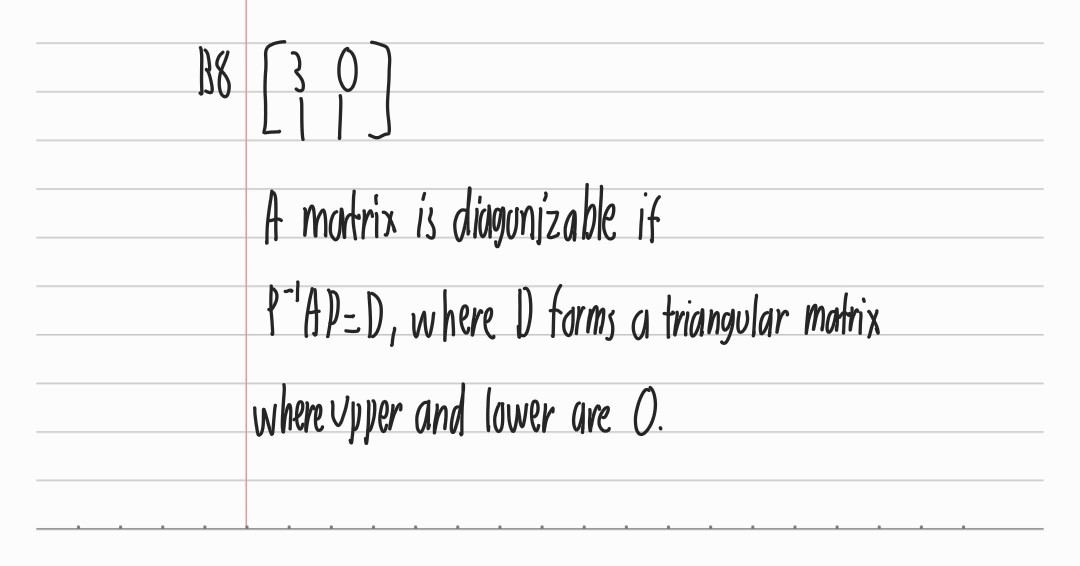 B8 [3 0
1 1]
A matrix is diagonizable if
P⁻¹AP=D, where D forms a triangular matrix
where upper and lower are 0.